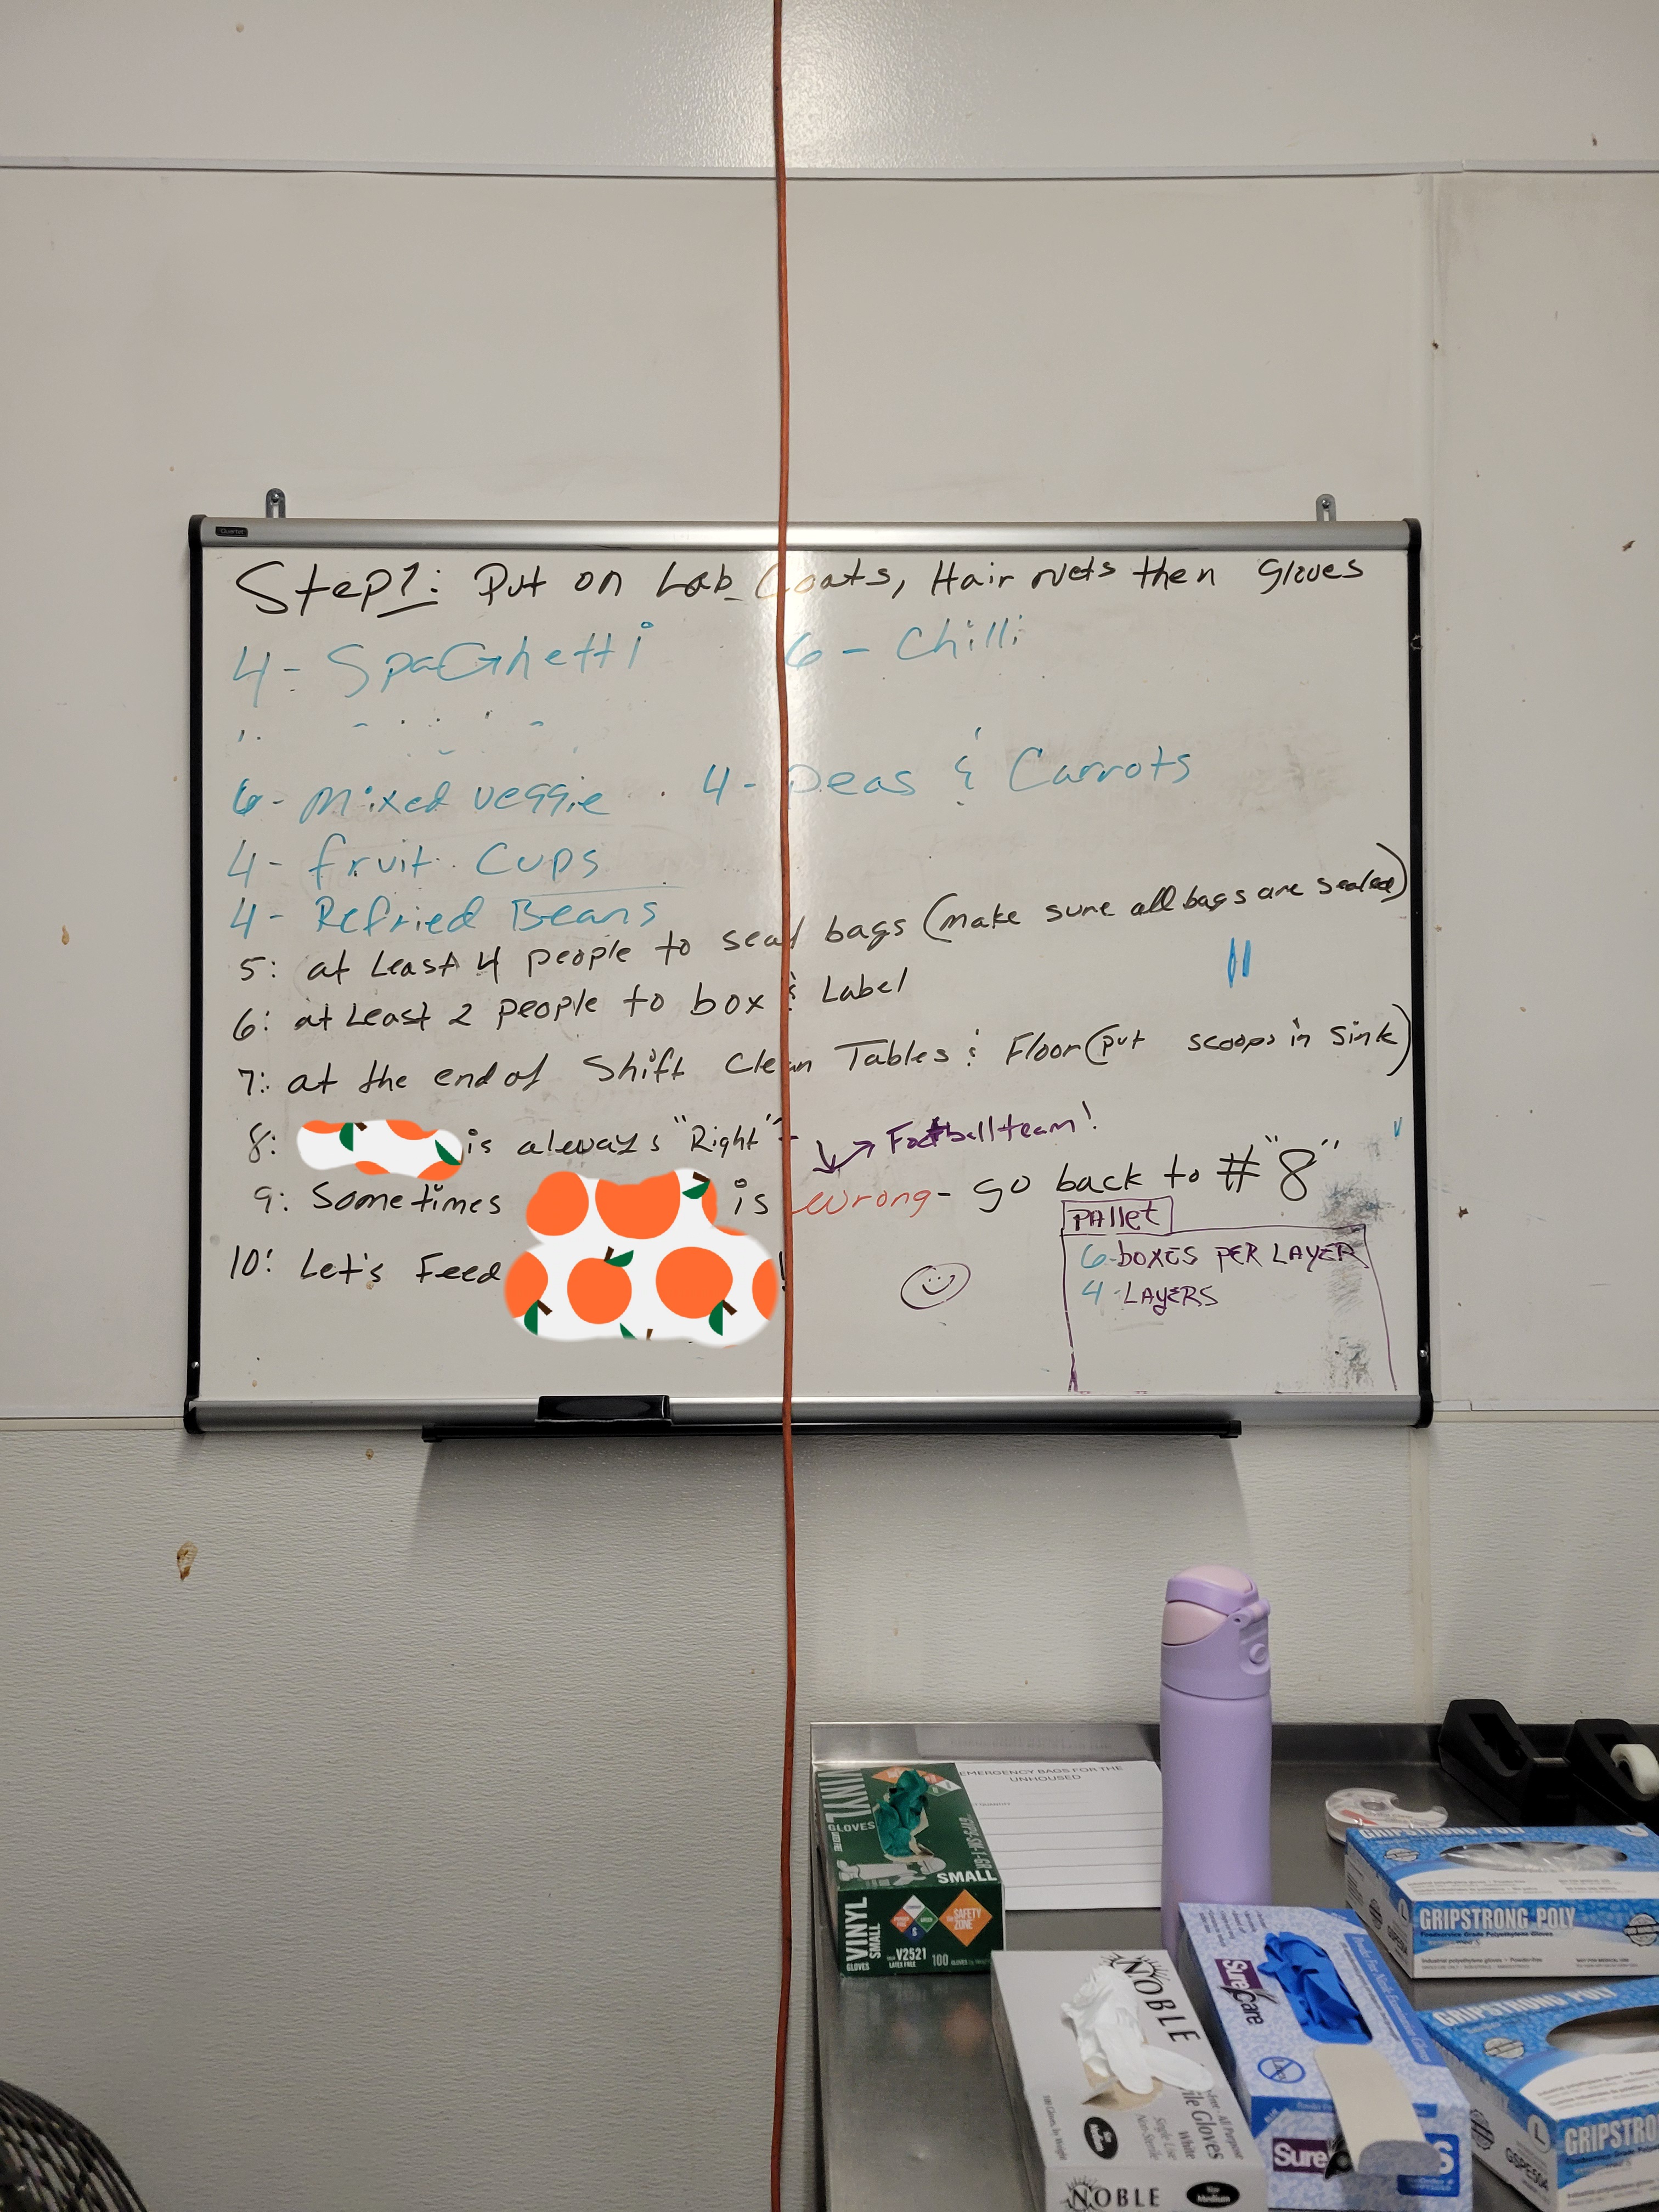 Quartet
Step 1: Put on Lab Coats, Hair nets then Gloves
4- SpaGhetti 6- Chilli
6- mixed veggie 4- Peas & Carrots
4- fruit Cups
4- Refried Beans
5: at Least 4 people to seal bags (make sure all bags are sealed)
6: at Least 2 people to box & Label
7: at the end of Shift Clean Tables & Floor (put scoops in sink)
8: is always "Right"- Football team!
9: Sometimes is wrong- go back to #"8"
10: Let's Feed !
PAllet
6-boxes PER LAYER
4-LAYERS
EMERGENCY BAGS FOR THE
UNHOUSED
VINYL
GLOVES
SMALL
VINYL
SMALL
GLOVES
SAFETY
ZONE
V2521
LATEX FREE
100
NOBLE
Gloves
White
NOBLE
Medium
SureCare
Sure
GRIPSTRONG POLY
GRIPSTRONG POLY
Foodservice Grade Polyethylene Gloves
Industrial polyethylene gloves • Powder-free
GRIPSTRONG POLY
L
GRIPSTRO